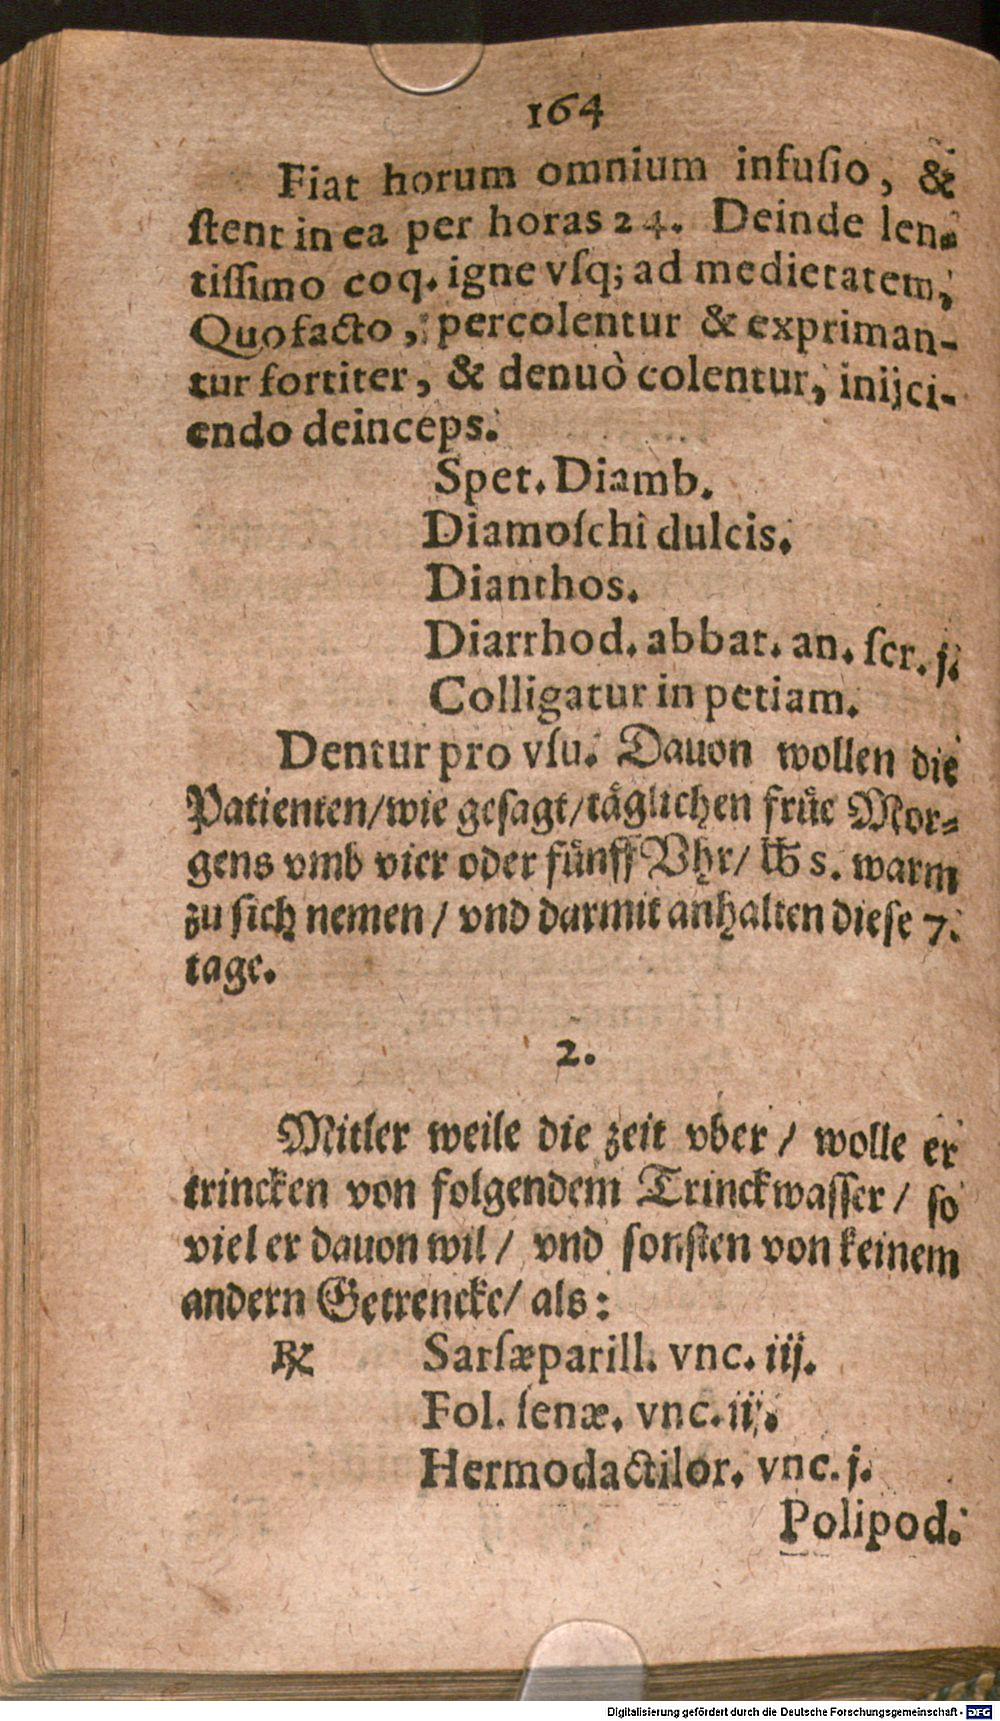 164
Fiat horum omnium infuſio, &
ſtent in ea per horas 24. Deinde len-
tiſſimo coq. igne vſq; ad medietatem,
Quofacto, percolentur & expriman-
tur fortiter, & denuò colentur, inijci-
endo deinceps.
Spet. Diamb.
Diamoſchi dulcis.
Dianthos.
Diarrhod. abbat. an. ſcr. j.
Colligatur in petiam.
Dentur pro vſu. Dauon wollen die
Patienten/wie geſagt/täglichen früe Mor-
gens vmb vier oder fünff Vhr/ ℔ s. warm
zu ſich nemen / vnd darmit anhalten dieſe 7.
tage.
2.
Mitler weile die zeit vber / wolle er
trincken von folgendem Trinckwaſſer / ſo
viel er dauon wil / vnd ſonſten von keinem
andern Getrencke/ als:
℞ Sarſæparill. vnc. iij.
Fol. ſenæ. vnc. ij.
Hermodactilor. vnc. j.
Polipod.
Digitalisierung gefördert durch die Deutsche Forschungsgemeinschaft - DFG